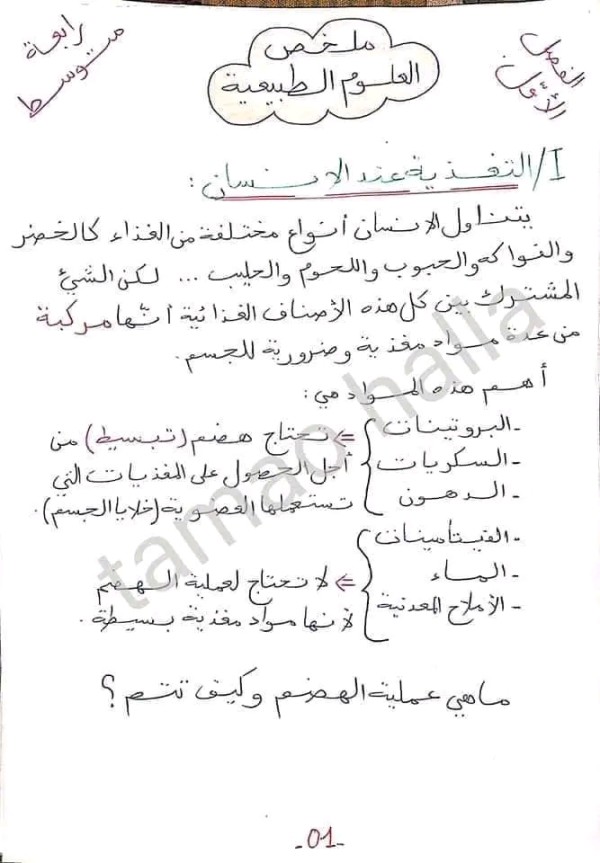 رابعة
متوسط
ملخص
العلوم الطبيعية
الفصل
الأول
I/ التغذية عند الانسان :
يتناول الانسان أنواع مختلفة من الغذاء كالخضر
والفواكه والحبوب واللحوم والحليب ... لكن الشيئ
المشترك بين كل هذه الأصناف الغذائية أنّها مركبة
من عدة مواد مغذية وضرورية للجسم.
أهم هذه المواد هي:
- البروتينات
- السكريات
- الدهون
⇐ تحتاج هضم (تبسيط) من
أجل الحصول على المغذيات التي
تستعملها العضوية (خلايا الجسم).
- الفيتامينات
- الماء
- الأملاح المعدنية
⇐ لا تحتاج لعملية الهضم
لأنها مواد مغذية بسيطة.
ماهي عملية الهضم وكيف تتم؟
-01-
tamao halla